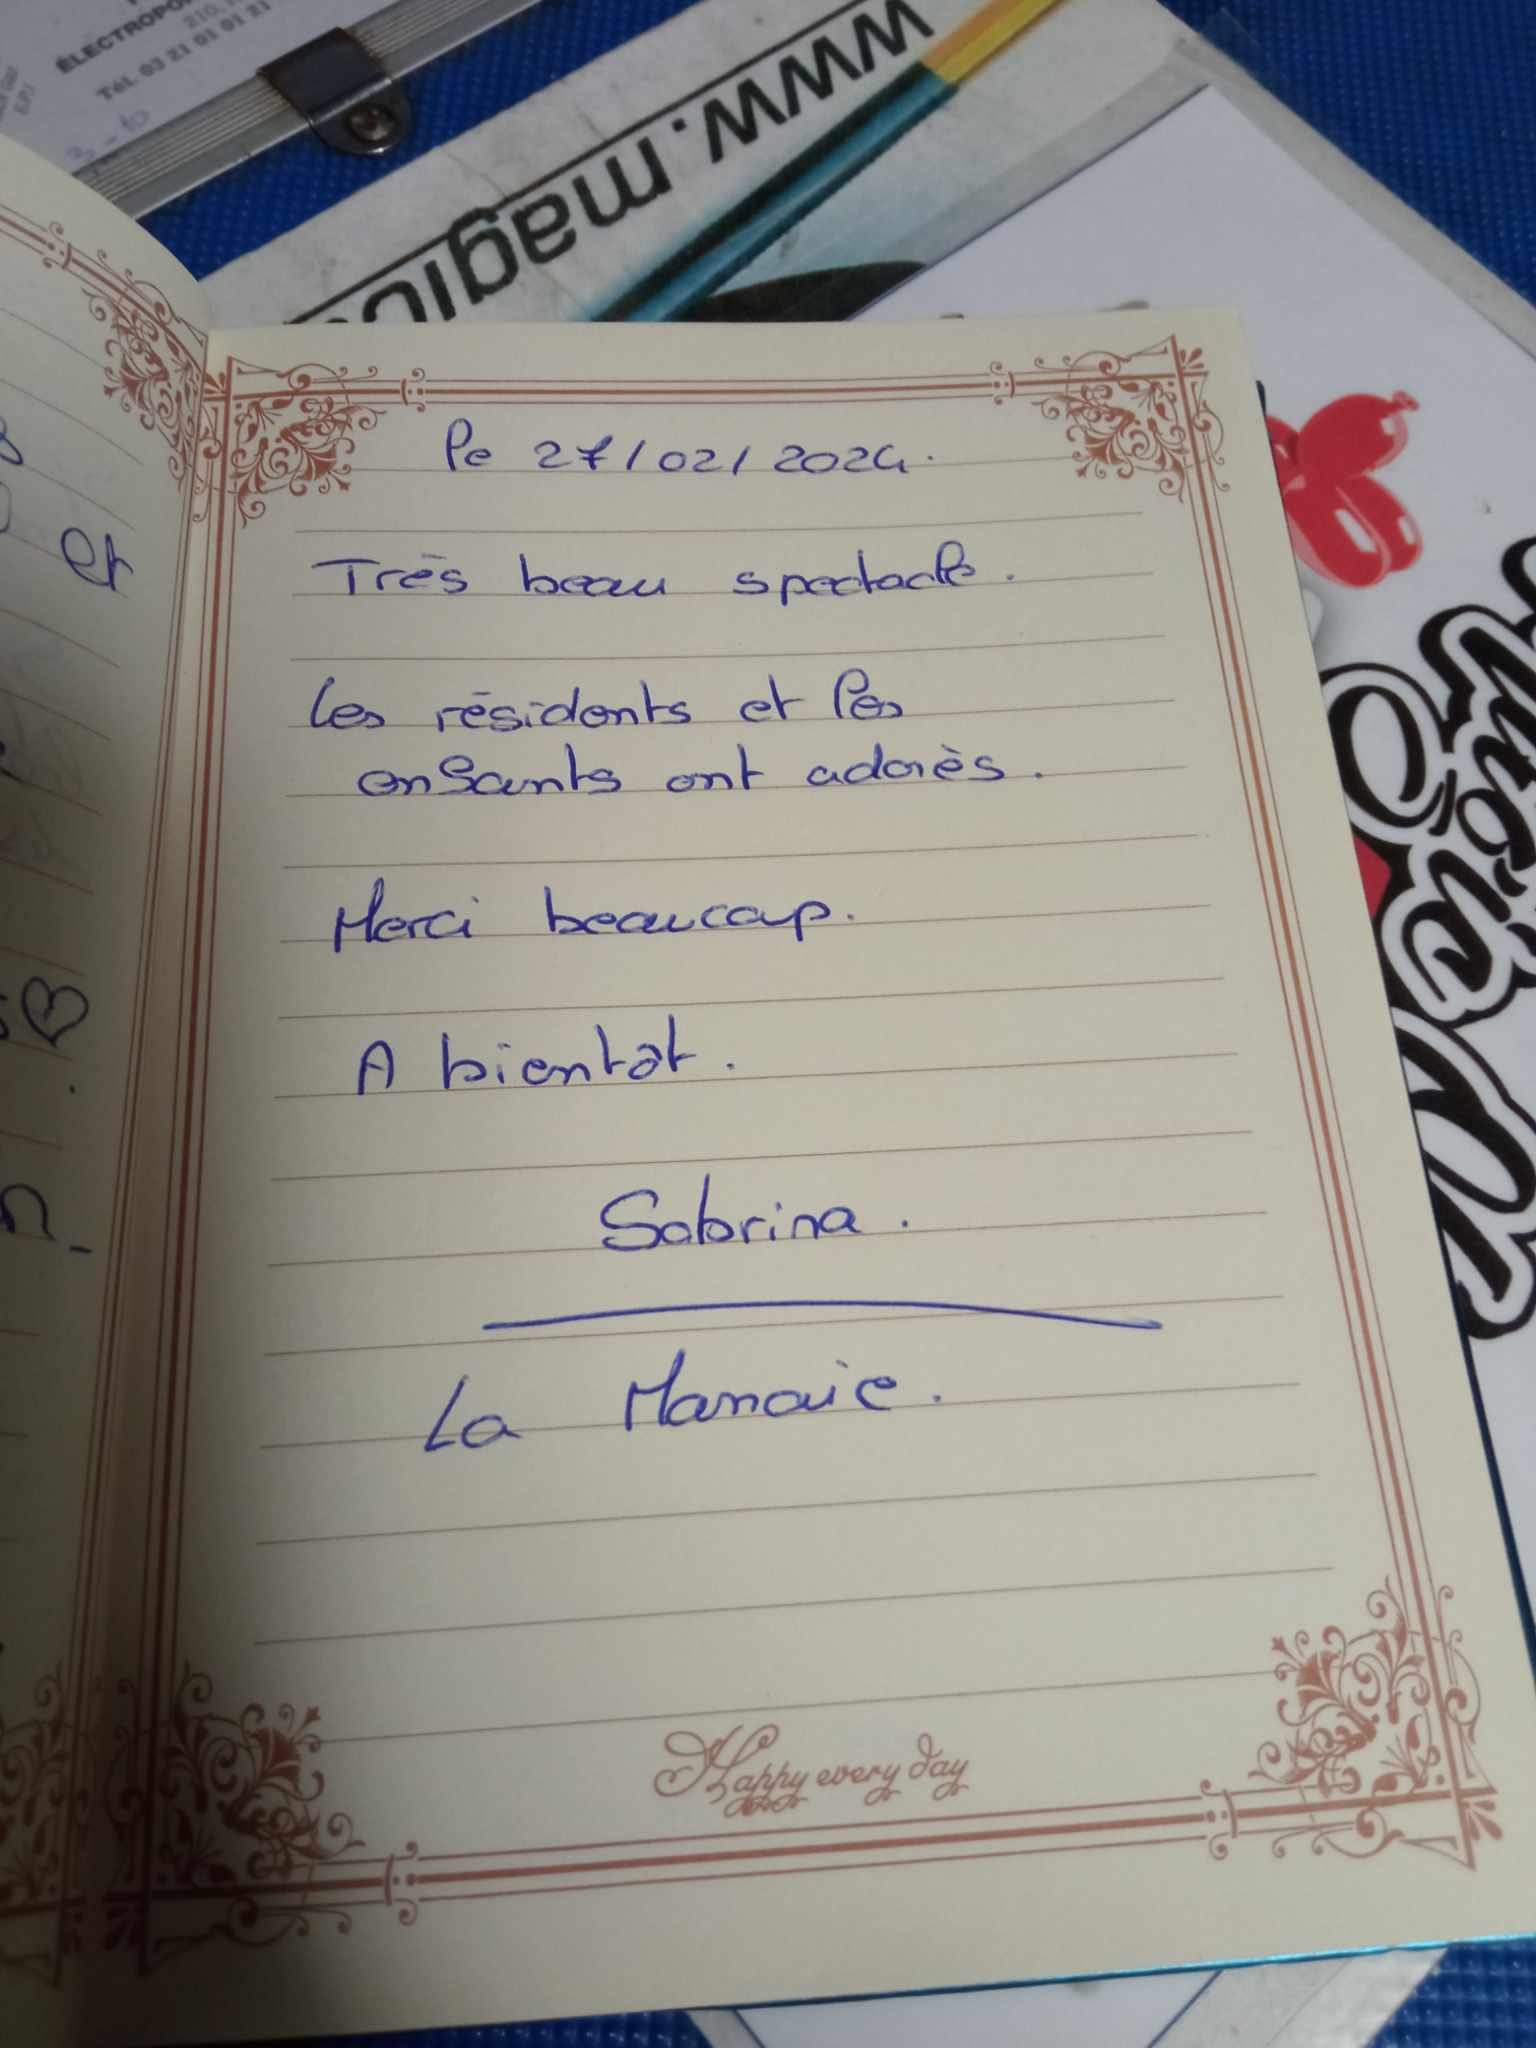 ÉLECTROPOR
Tél. 03 21 01 01 21
3-10
www.magic
et
le 27/02/2024.
Très beau spectacle.
Les résidents et les
enfants ont adorés.
Merci beaucoup.
A bientôt.
Sabrina.
La Manaie.
Happy every day